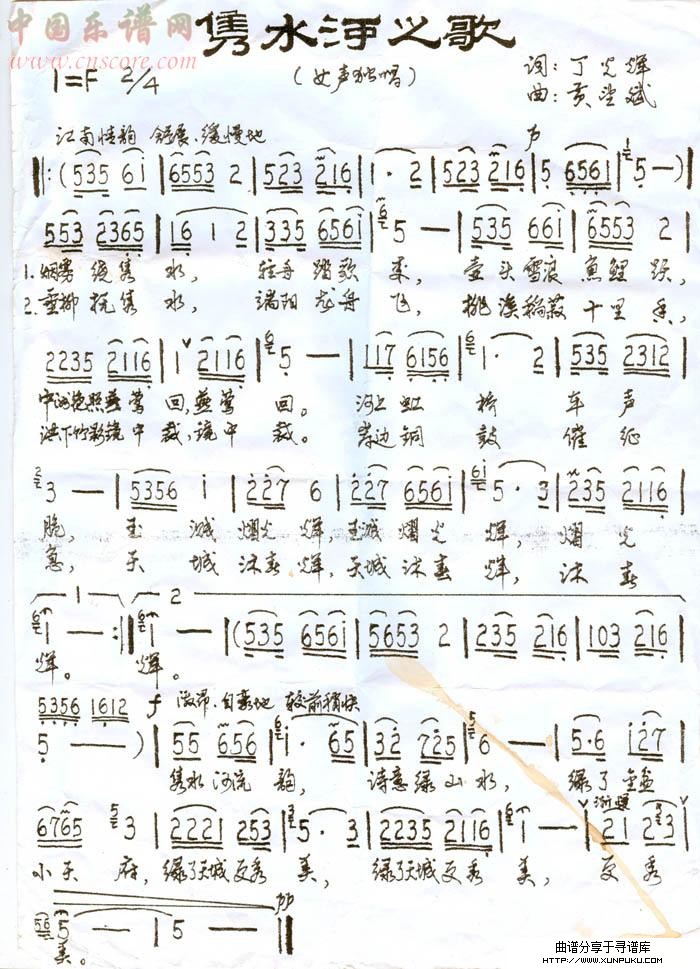 中国乐谱网
www.cnscore.com
隽水河之歌
(女声独唱)
1=F 2/4
词:丁光辉
曲:黄
江南情韵 舒展、缓慢地
‖:(535 61̇ | 6553 2 | 523 216 | 1·2 | 523 216 | 5 6561 | 5 —) |
553 2365 | 16 1 2 | 335 6561 | 5 — | 535 661 | 6553 2 |
1. 烟雾绕隽水, 轻舟踏歌来, 壶头雪浪鱼鲤跃,
2. 垂柳抚隽水, 端阳龙舟飞, 桃溪稻菽十里香,
2235 2116 | 1 2116 | 5 — | 117 6156 | 1· 2 | 535 2312 |
中洲晚照燕莺回,燕莺回。 河上虹桥车声
洪下竹影镜中裁,镜中裁。 岸边铜鼓催征
3 — | 5356 i | 227 6 | 227 6561 | 5· 3 | 235 2116 |
脆, 玉城熠光辉,玉城熠光辉, 熠光
急, 天城沐春辉,天城沐春辉, 沐春
1 2
1 — :‖ 1 — | (535 6561 | 5653 2 | 235 216 | 103 216 |
辉。 辉。
5356 1612 f 激昂、自豪地 较前稍快
5 — ) | 55 656 | i· 65 | 32 725 | 6 — | 5·6 127 |
隽水河流韵, 诗意绿山水, 绿了
渐慢
6765 3 | 2221 253 | 5· 3 | 2235 2116 | 1 — | 21 23 |
小天府,绿了天城更秀美, 绿了天城更秀美, 更秀
pp
5 — | 5 — ‖
美。
曲谱分享于寻谱库
HTTP://WWW.XUNPUKU.COM